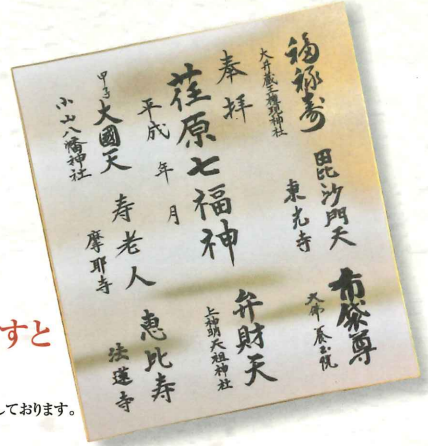 福禄寿
大井蔵王権現神社
毘沙門天
東光寺
布袋尊
大佛 養玉院
奉拝
荏原七福神
平成 年 月
弁財天
上神明天祖神社
甲子 大國天
小山八幡神社
寿老人
摩耶寺
恵比寿
法蓮寺
すと
しております。